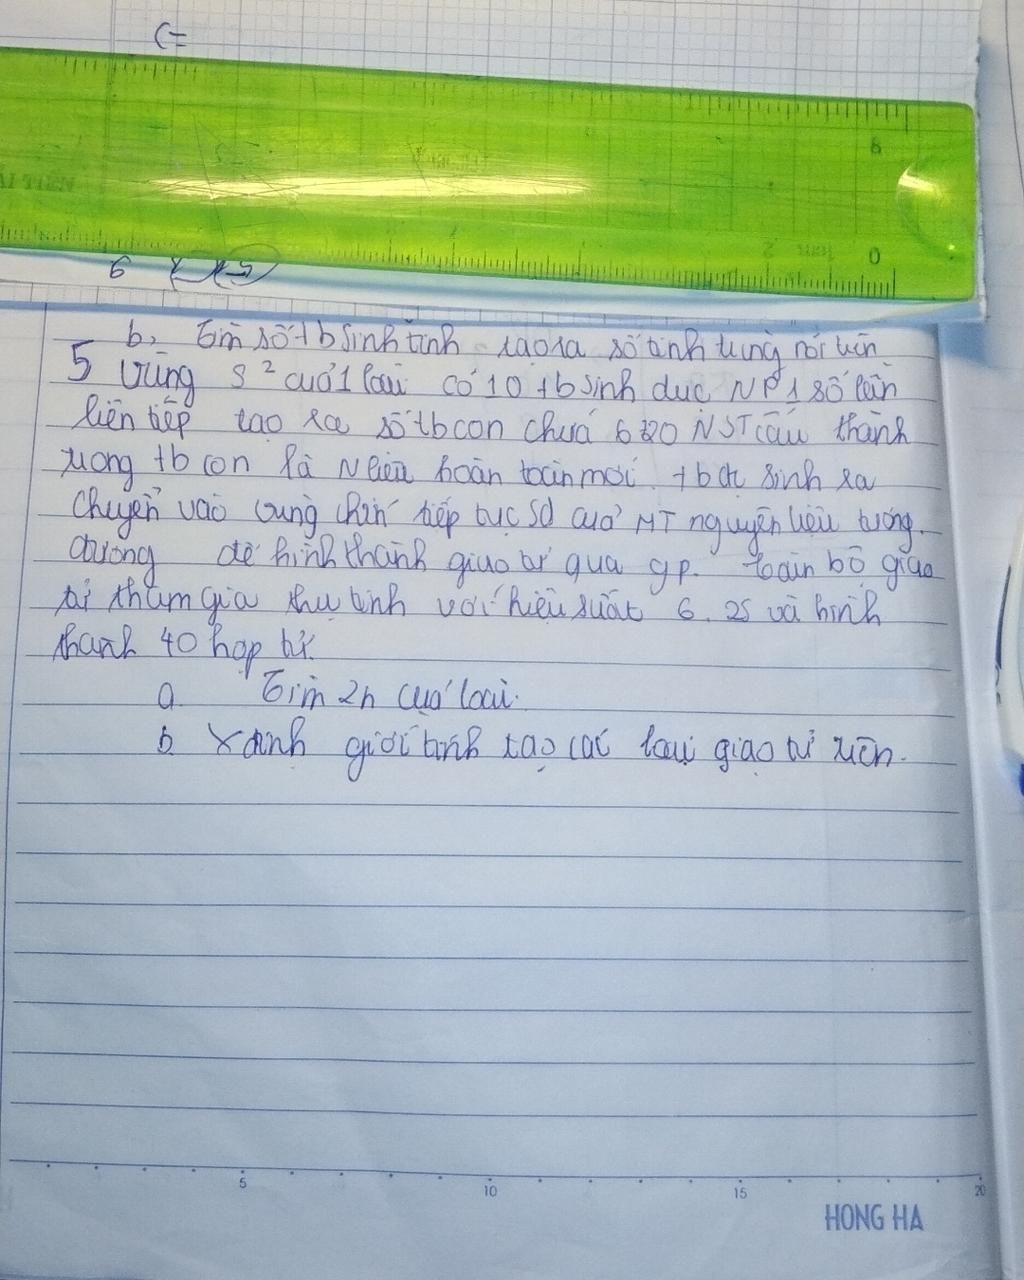 (=
8
2
0
6
b, Tìm số tb sinh tinh tạo ra số tinh trùng nói trên
5 Vùng s² của 1 loài có 10 tb sinh dục NP 1 số lần
liên tiếp tạo ra số tb con chứa NST cấu thành
trong tb con là Nliệu hoàn toàn mới. tb đc sinh ra
chuyển vào vùng chín tiếp tục sd của MT nguyên liệu tương
đương để hình thành giao tử qua gp. toàn bộ giao
tử tham gia thụ tinh với hiệu suất 6.25 và hình
thành 40 hợp tử.
a. Tìm 2n của loài.
b. Xđịnh giới tính tạo các loại giao tử trên.
5 10 15 20
HONG HA